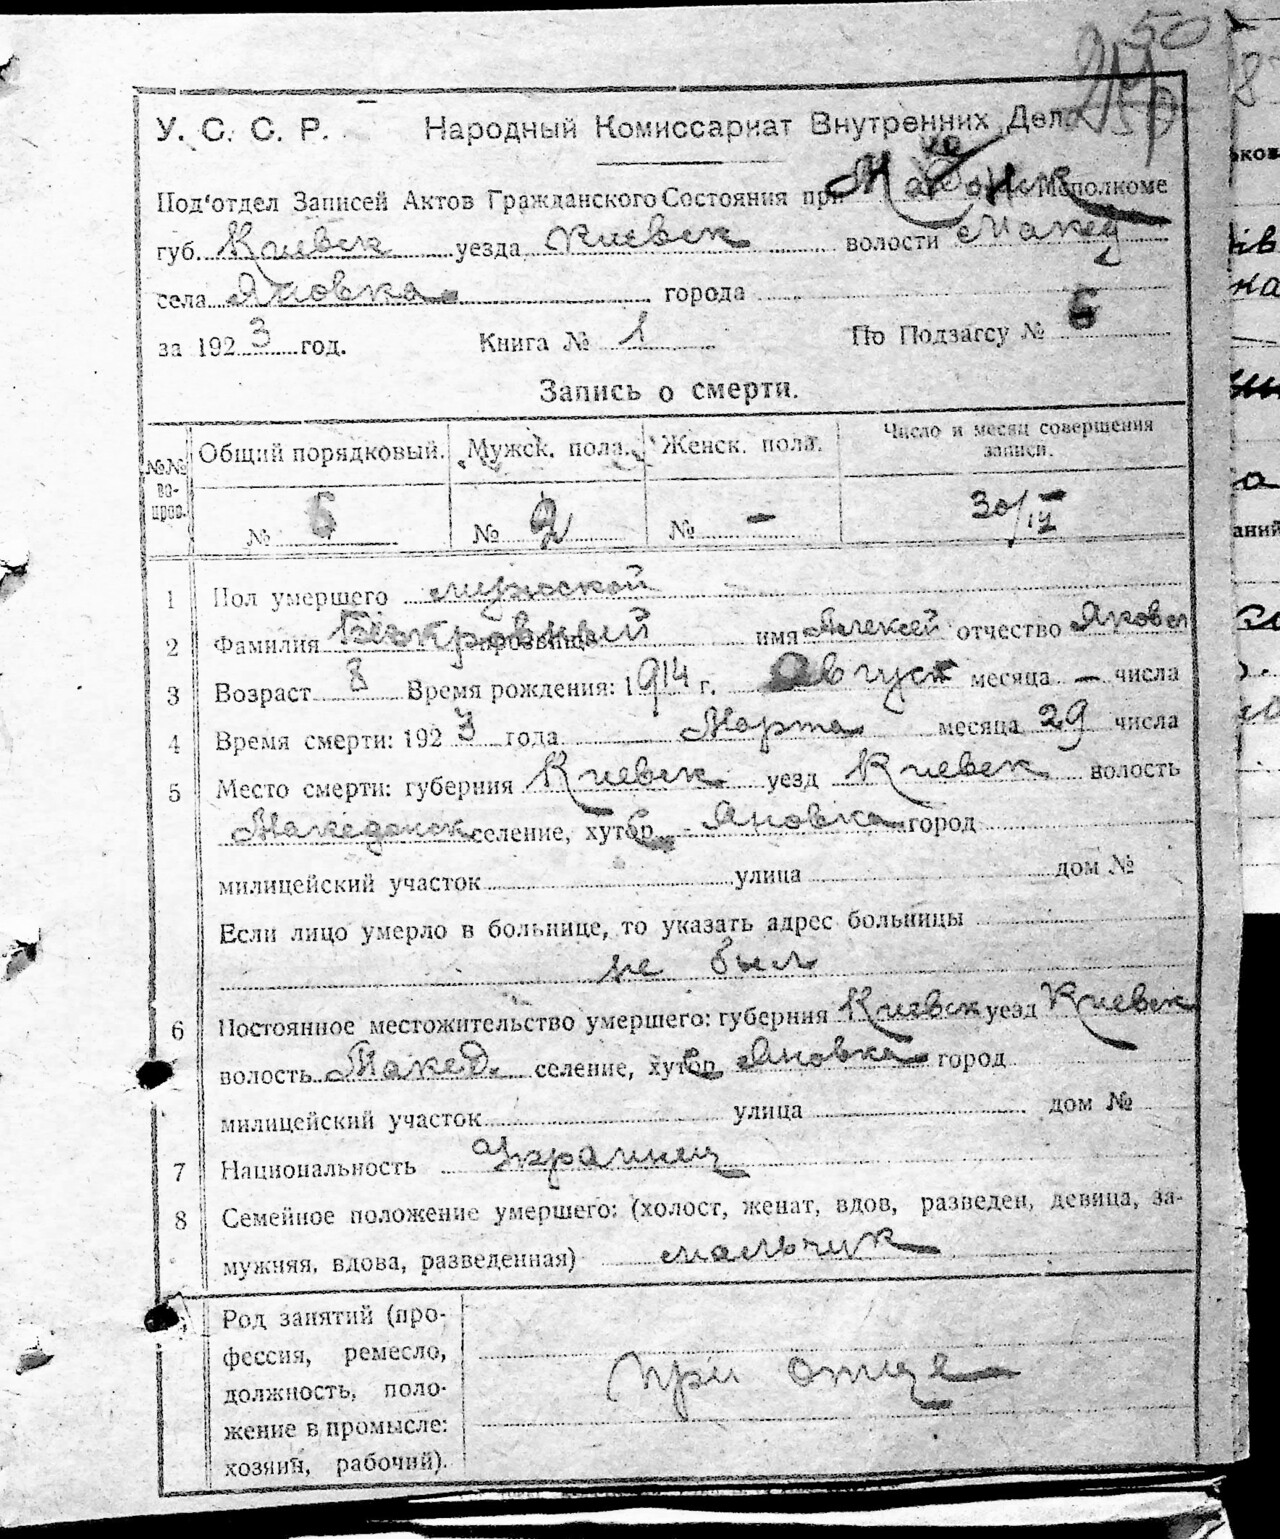 50
У. С. С. Р. Народный Комиссариат Внутренних Дел.
Под'отдел Записей Актов Гражданского Состояния при Исполкоме
губ. Киевск уезда Киевск волости Макед
села Яновка города
за 1923 год. Книга № 1 По Подзагсу № 6
Запись о смерти.
№№ во- прос. Общий порядковый. Мужск. пола. Женск. пола. Число и месяц совершения записи.
№ 6 № 2 № – 30/IV
1 Пол умершего мужской
2 Фамилия имя Алексей отчество Яковл
3 Возраст 8 Время рождения: 1914 г. Август месяца – числа
4 Время смерти: 1923 года Марта месяца 29 числа
5 Место смерти: губерния Киевск уезд Киевск волость
Македонск селение, хутор Яновка город
милицейский участок улица дом №
Если лицо умерло в больнице, то указать адрес больницы
не был
6 Постоянное местожительство умершего: губерния Киевск уезд Киевск
волость Макед. селение, хутор Яновка город
милицейский участок улица дом №
7 Национальность Украинец
8 Семейное положение умершего: (холост, женат, вдов, разведен, девица, за-
мужняя, вдова, разведенная) мальчик
Род занятий (про-
фессия, ремесло,
должность, поло-
жение в промысле:
хозяин, рабочий).
при отце